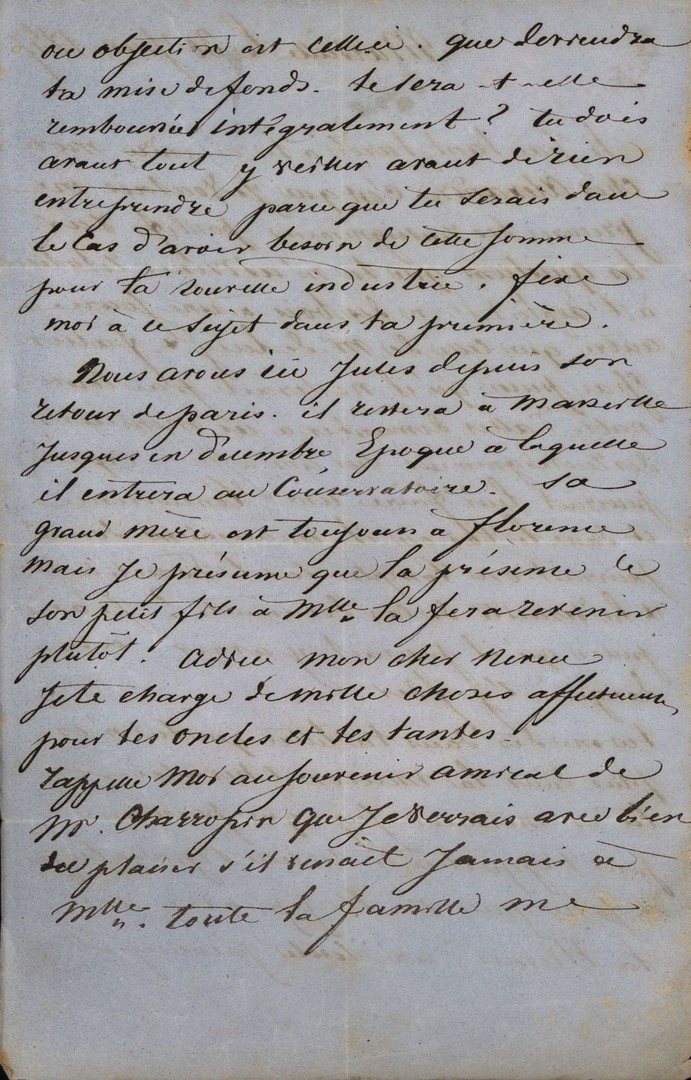 ou objection est celle ci. que deviendra
ta mise de fonds. te sera-t-elle
remboursée intégralement? tu dois
avant tout y veiller avant de rien
entreprendre parce que tu serais dans
le cas d'avoir besoin de cette somme
pour ta nouvelle industrie. fixe
moi à ce sujet dans ta première.
Nous avons ici Jules depuis son
retour de paris. il restera à Marseille
Jusques en Décembre Epoque à laquelle
il entrera au Conservatoire. sa
grand mère est toujours à florence
mais Je présume que la présence de
son petit fils à Mlle la fera revenir
plutôt. adieu mon cher Neveu
Je te charge de mille choses affectueuses
pour tes oncles et tes tantes.
rappelle moi au souvenir amical de
Mr. Charropin que Je verrais avec bien
du plaisir s'il venait Jamais à
Mlle. toute la famille me